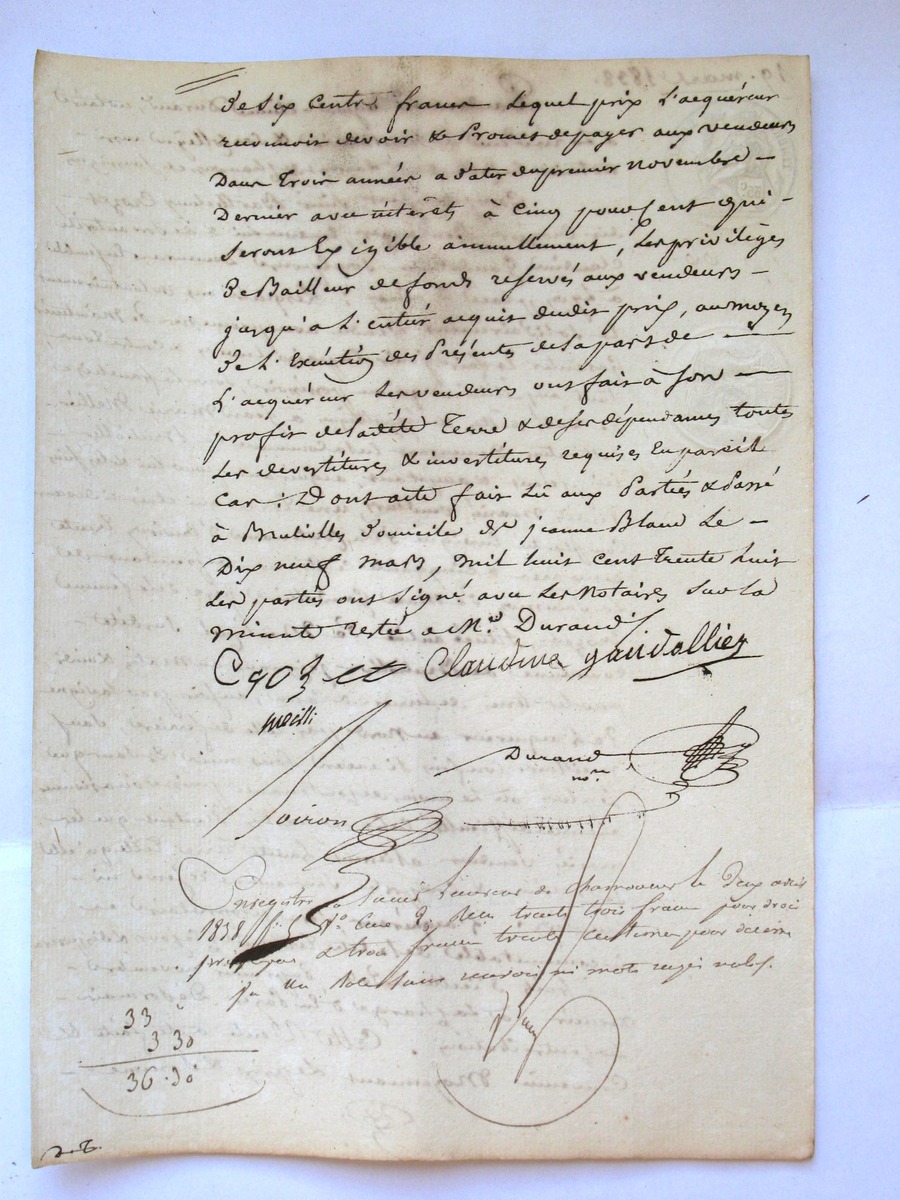 de Six Cents francs Lequel prix L'acquéreur
reconnoit devoir & Promet de payer aux vendeurs
Dans Trois années a dater du premier novembre —
Dernier avec intérêts à Cinq pour Cent qui -
Seront Exigible annuellement, Les privilèges
de Bailleur de fonds reservés aux vendeurs —
jusqu'a L'entier acquit dudit prix, au moyen
de L'Exécution des Présentes de la part de —
L'acquéreur Les vendeurs ont fait à Son —
profit de Ladite Terre & de ses dépendances toutes
Les devestitures & investitures requises En pareil
Cas. Dont acte fait Lû aux Parties & Passé
à domicile de jeanne Blanc Le —
Dix neuf mars, mil huit cent trente huit
Les parties ont Signé avec Les Notaires Sur La
Minute restée a Me. Durand
Claudine
Durand
nore
Soiron
Enregistré à le deux avril
1838 Reçu trente trois francs pour droit
& trois francs trente Centimes pour décime
un Rôle Sans renvoi ni mots rayés nuls.
33
3 30
36.30